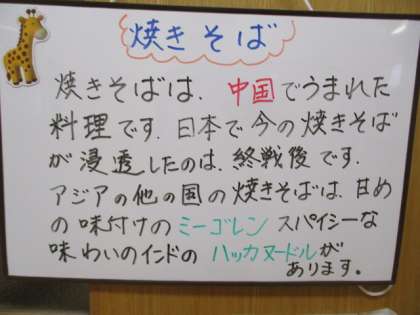 焼きそば
焼きそばは、中国でうまれた
料理です。日本で今の焼きそば
が浸透したのは、終戦後です。
アジアの他の国の焼きそばは、甘め
の味付けのミーゴレン スパイシーな
味わいのインドの ハッカヌードルが
あります。